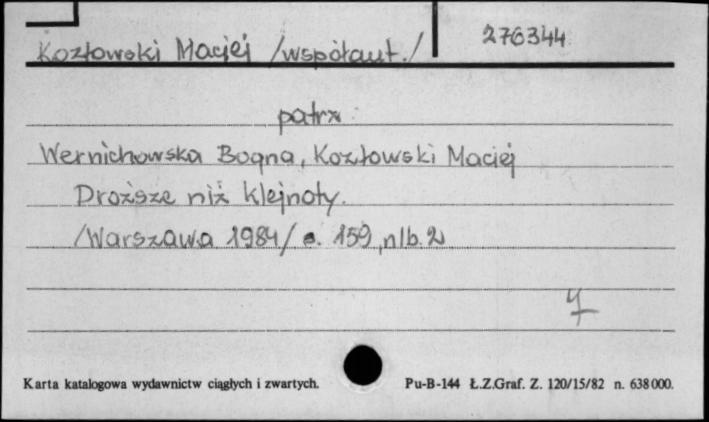 Kozłowski Maciej /współaut./ 276344
patrz
Wernichowska Bogna, Kozłowski Maciej
Droższe niż klejnoty.
/Warszawa 1984/ s. 159, nlb. 2
Karta katalogowa wydawnictw ciągłych i zwartych. Pu-B-144 Ł.Z.Graf. Z. 120/15/82 n. 638000.